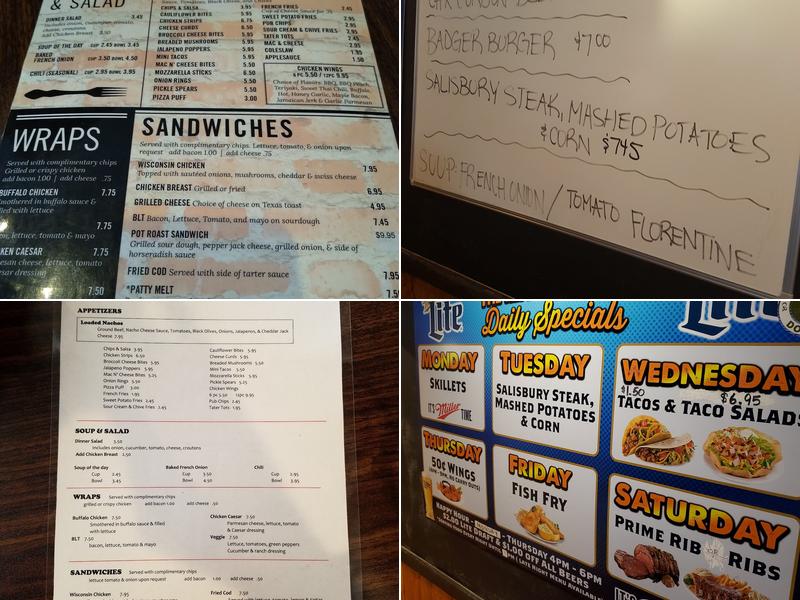 & SALAD
DINNER SALAD 3.45
Includes onion, cucumber, tomato,
cheese, croutons
Add Chicken Breast 3.50
SOUP OF THE DAY CUP 2.45 BOWL 3.45
BAKED
FRENCH ONION CUP 3.50 BOWL 4.50
CHILI (SEASONAL) CUP 2.95 BOWL 3.95
CHIPS & SALSA 3.95
CAULIFLOWER BITES 5.95
CHICKEN STRIPS 6.75
CHEESE CURDS 6.50
BROCCOLI CHEESE BITES 5.95
BREADED MUSHROOMS 5.95
JALAPENO POPPERS 5.95
MINI TACOS 5.95
MAC N' CHEESE BITES 5.50
MOZZARELLA STICKS 6.50
ONION RINGS 5.50
PICKLE SPEARS 5.50
PIZZA PUFF 3.00
FRENCH FRIES 2.45
SWEET POTATO FRIES 2.95
PUB CHIPS 2.95
SOUR CREAM & CHIVE FRIES 2.95
TATER TOTS 2.45
MAC & CHEESE 2.95
COLESLAW 1.95
APPLESAUCE 1.50
CHICKEN WINGS
6 PC 5.50 / 12PC 9.95
Choice of Flavors: BBQ, BBQ Peach,
Teriyaki, Sweet Thai Chili, Buffalo,
Hot, Honey Garlic, Maple Bacon,
Jamaican Jerk & Garlic Parmesan
WRAPS
Served with complimentary chips
Grilled or crispy chicken
add bacon 1.00 | add cheese .75
BUFFALO CHICKEN 7.75
Smothered in buffalo sauce &
filled with lettuce
7.75
lettuce, tomato & mayo
KEN CAESAR 7.75
cheese, lettuce, tomato
sar dressing
7.50
SANDWICHES
Served with complimentary chips. Lettuce, tomato, & onion upon
request add bacon 1.00 | add cheese .75
WISCONSIN CHICKEN 7.95
Topped with sautéed onions, mushrooms, cheddar & swiss cheese
CHICKEN BREAST Grilled or fried 6.95
GRILLED CHEESE Choice of cheese on Texas toast 4.95
BLT Bacon, Lettuce, Tomato, and mayo on sourdough 7.45
POT ROAST SANDWICH $9.95
Grilled sour dough, pepper jack cheese, grilled onion, & side of
horseradish sauce
FRIED COD Served with side of tarter sauce 7.95
*PATTY MELT
BADGER BURGER $7.00
SALISBURY STEAK, MASHED POTATOES
& CORN $7.45
SOUP: FRENCH ONION / TOMATO FLORENTINE
APPETIZERS
Loaded Nachos
Ground Beef, Nacho Cheese Sauce, Tomatoes, Black Olives, Onions, Jalapenos, & Cheddar Jack
Cheese 7.95
Chips & Salsa 3.95
Chicken Strips 6.50
Broccoli Cheese Bites 5.95
Jalapeno Poppers 5.95
Mac N' Cheese Bites 5.25
Onion Rings 5.50
Pizza Puff 3.00
French Fries 1.95
Sweet Potato Fries 2.45
Sour Cream & Chive Fries 2.45
Cauliflower Bites 5.95
Cheese Curds 5.95
Breaded Mushrooms 5.50
Mini Tacos 5.50
Mozzarella Sticks 5.95
Pickle Spears 5.25
Chicken Wings
6 pc 5.50 12pc 9.95
Pub Chips 2.45
Tater Tots 1.95
SOUP & SALAD
Dinner Salad 3.50
Includes onion, cucumber, tomato, cheese, croutons
Add Chicken Breast 2.50
Soup of the day
Cup 2.45
Bowl 3.45
Baked French Onion
Cup 3.50
Bowl 4.50
Chili
Cup 2.95
Bowl 3.95
WRAPS Served with complimentary chips
grilled or crispy chicken add bacon 1.00 add cheese .50
Buffalo Chicken 7.50
Smothered in buffalo sauce & filled
with lettuce
BLT 7.50
bacon, lettuce, tomato & mayo
Chicken Caesar 7.50
Parmesan cheese, lettuce, tomato
& Caesar dressing
Veggie 7.50
Lettuce, tomatoes, green peppers
Cucumber & ranch dressing
SANDWICHES Served with complimentary chips
lettuce tomato & onion upon request add bacon 1.00 add cheese .50
Wisconsin Chicken 7.95
Fried Cod 7.50
Lite
Daily Specials
MONDAY
SKILLETS
IT'S Miller TIME
TUESDAY
SALISBURY STEAK,
MASHED POTATOES
& CORN
WEDNESDAY
$1.50 $6.95
TACOS & TACO SALADS
THURSDAY
50¢ WINGS
FRIDAY
FISH FRY
SATURDAY
PRIME RIB OR RIBS
HAPPY HOUR - MONDAY - THURSDAY 4PM - 6PM
$2.00 LITE DRAFT & $1.00 OFF ALL BEERS